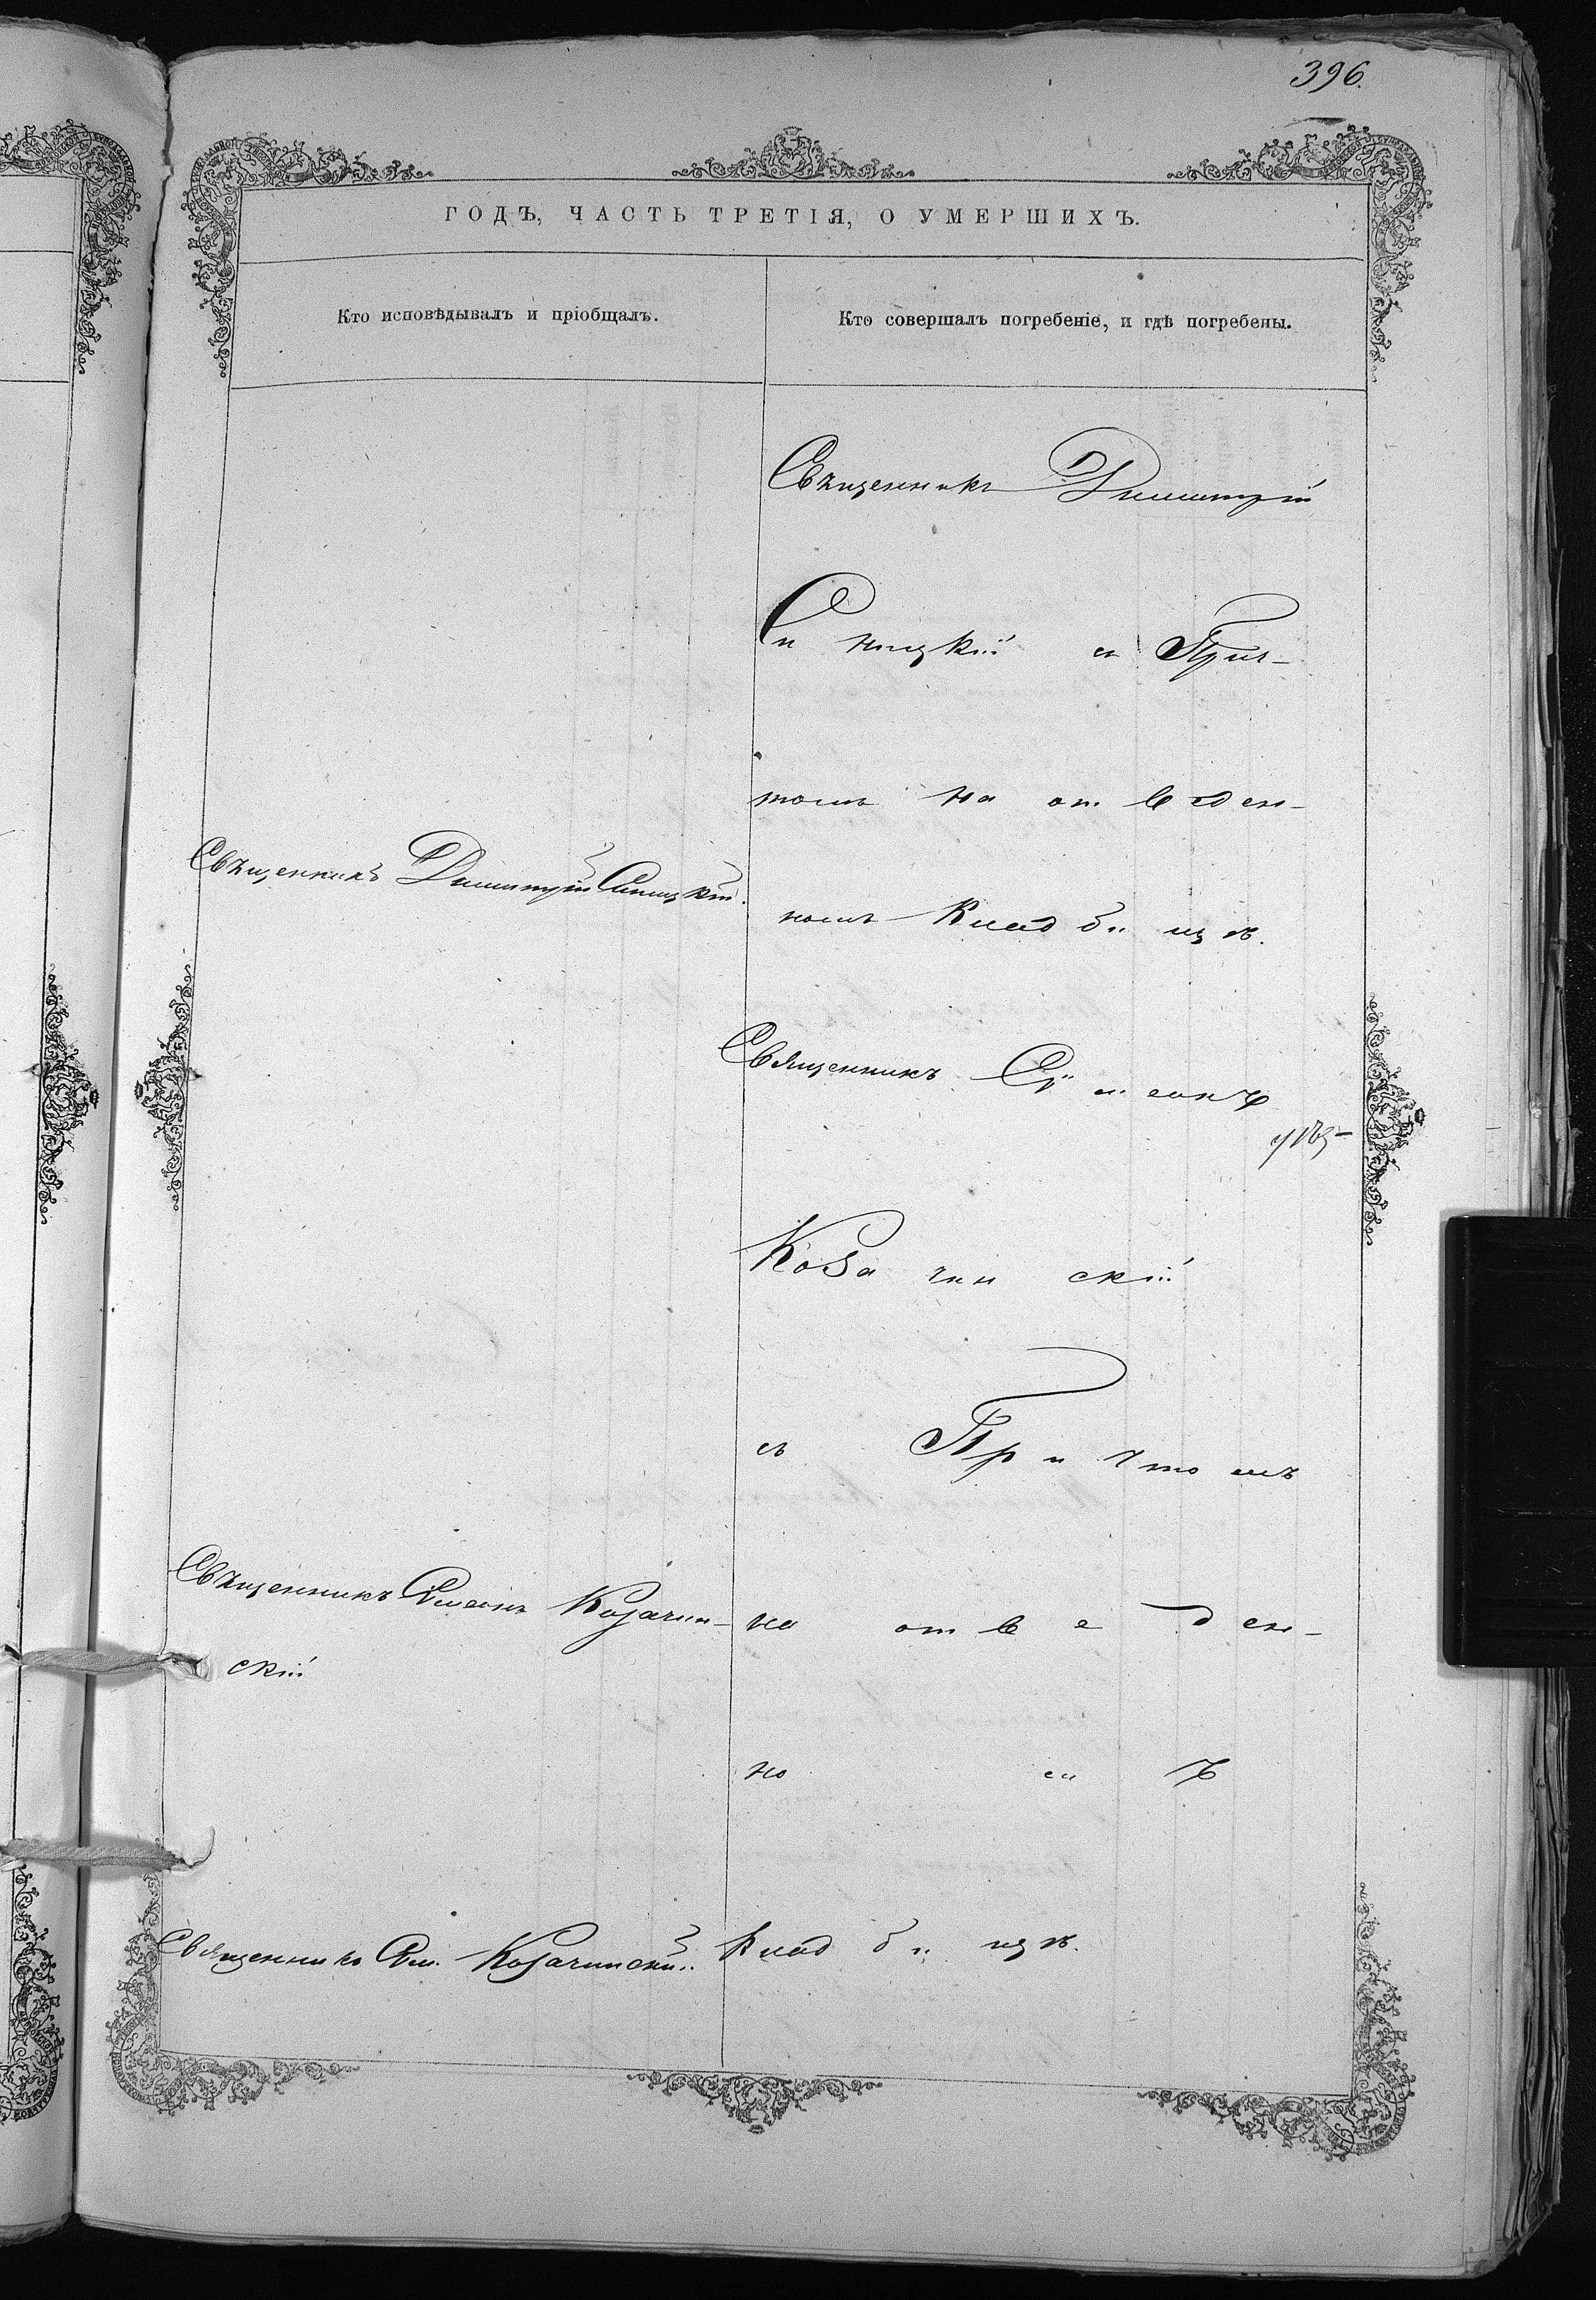 396.
ГОДЪ, ЧАСТЬ ТРЕТІЯ, О УМЕРШИХЪ.
Кто исповѣдывалъ и пріобщалъ.
Кто совершалъ погребеніе, и гдѣ погребены.
Священникъ Димитрій Синицкій.
Священникъ Симеонъ Козачин-
скій
Священникъ Сим. Козачинскій.
Священникъ Димитрій
Синицкій съ Прич-
томъ на отведен-
номъ кладбищѣ.
Священникъ Симеонъ
Козачинскій
съ Причтомъ
на отведен-
номъ
кладбищѣ.